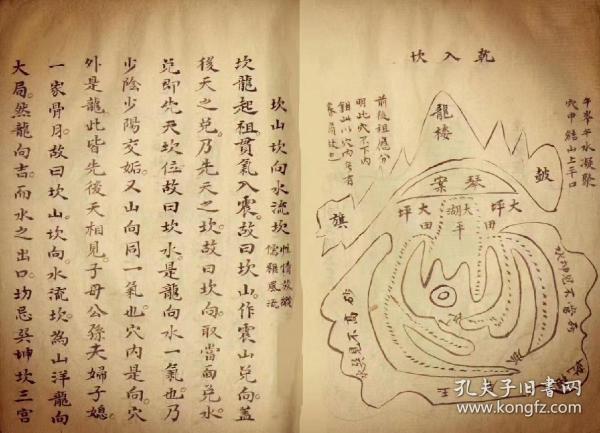 乾入坎
午峯午水凝聚
穴中結山上平口
前後祖應分
明此穴下下內
龍楼
鼓
旗
琴案
大坪田
大湖平
大坪田
砂高不見水
坎山坎向水流坎
坎龍起祖貫氣入震。故曰坎山。作震山兑向。蓋
後天之兑。乃先天之坎。故曰坎向。取當面兑水。
兑即先天坎位。故曰坎水。是龍向水一氣也。乃
少陰少陽交姤。又山向同一氣也。穴內是向。穴
外是龍。此皆先後天相見。子母公孫夫婦子媳。
一家骨月。故曰坎山。坎向。水流坎。為山洋龍向
大局。然龍向吉。而水之出口。切忌巽坤坎三宫
孔夫子旧書网
www.kongfz.com